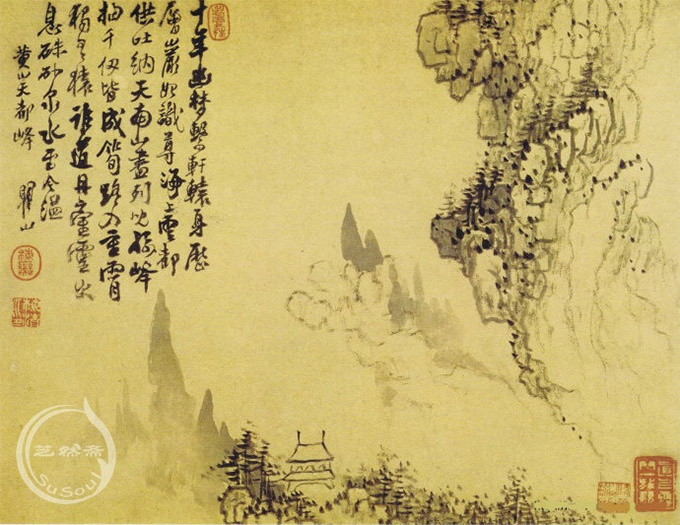 十年幽夢繫軒轅身歷
層巖始識尊海上雲都
供吐納天南山盡列兒孫峰
抽千仞皆成筍路入重霄
獨有猿誰道丹臺靈火
息硃砂泉水至今温
黄山天都峰 瞿山
SuSoul